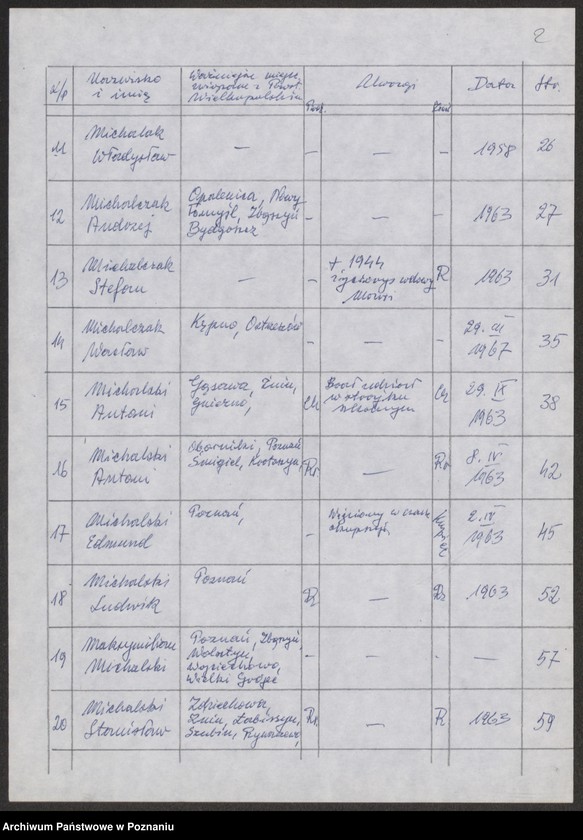 2
L/p Nazwisko i imię Ważniejsze miejsc. związane z Powst. Wielkopolskim Pocz. Uwagi Końc. Data Str.
11 Michalak Władysław — — — - 1958 26
12 Michalczak Andrzej Opalenica, Nowy Tomyśl, Zbąszyń Bydgoszcz - — - 1963 27
13 Michalczak Stefan — - + 1944 wdowy R 1963 31
14 Michalczak Wacław Kępno, Ostrzeszów - — - 29. III 1967 35
15 Michalski Antoni Gąsawa, Żnin, Gniezno, Ch Brał udział w strajku szkolnym Ch 29. IX 1963 38
16 Michalski Antoni Oborniki, Poznań Śmigiel, Krotoszyn, — 8. IV 1963 42
17 Michalski Edmund Poznań, - Więziony w czasie okupacji, 2. IV 1963 45
18 Michalski Ludwik Poznań — 1963 52
19 Maksymilian Michalski Poznań, Zbąszyń, Wolsztyn, Wojciechowo, - — - — 57
20 Michalski Stanisław Zdziechowa, Żnin, Łabiszyn, Szubin, Rynarzewo, — R 1963 59
Archiwum Państwowe w Poznaniu